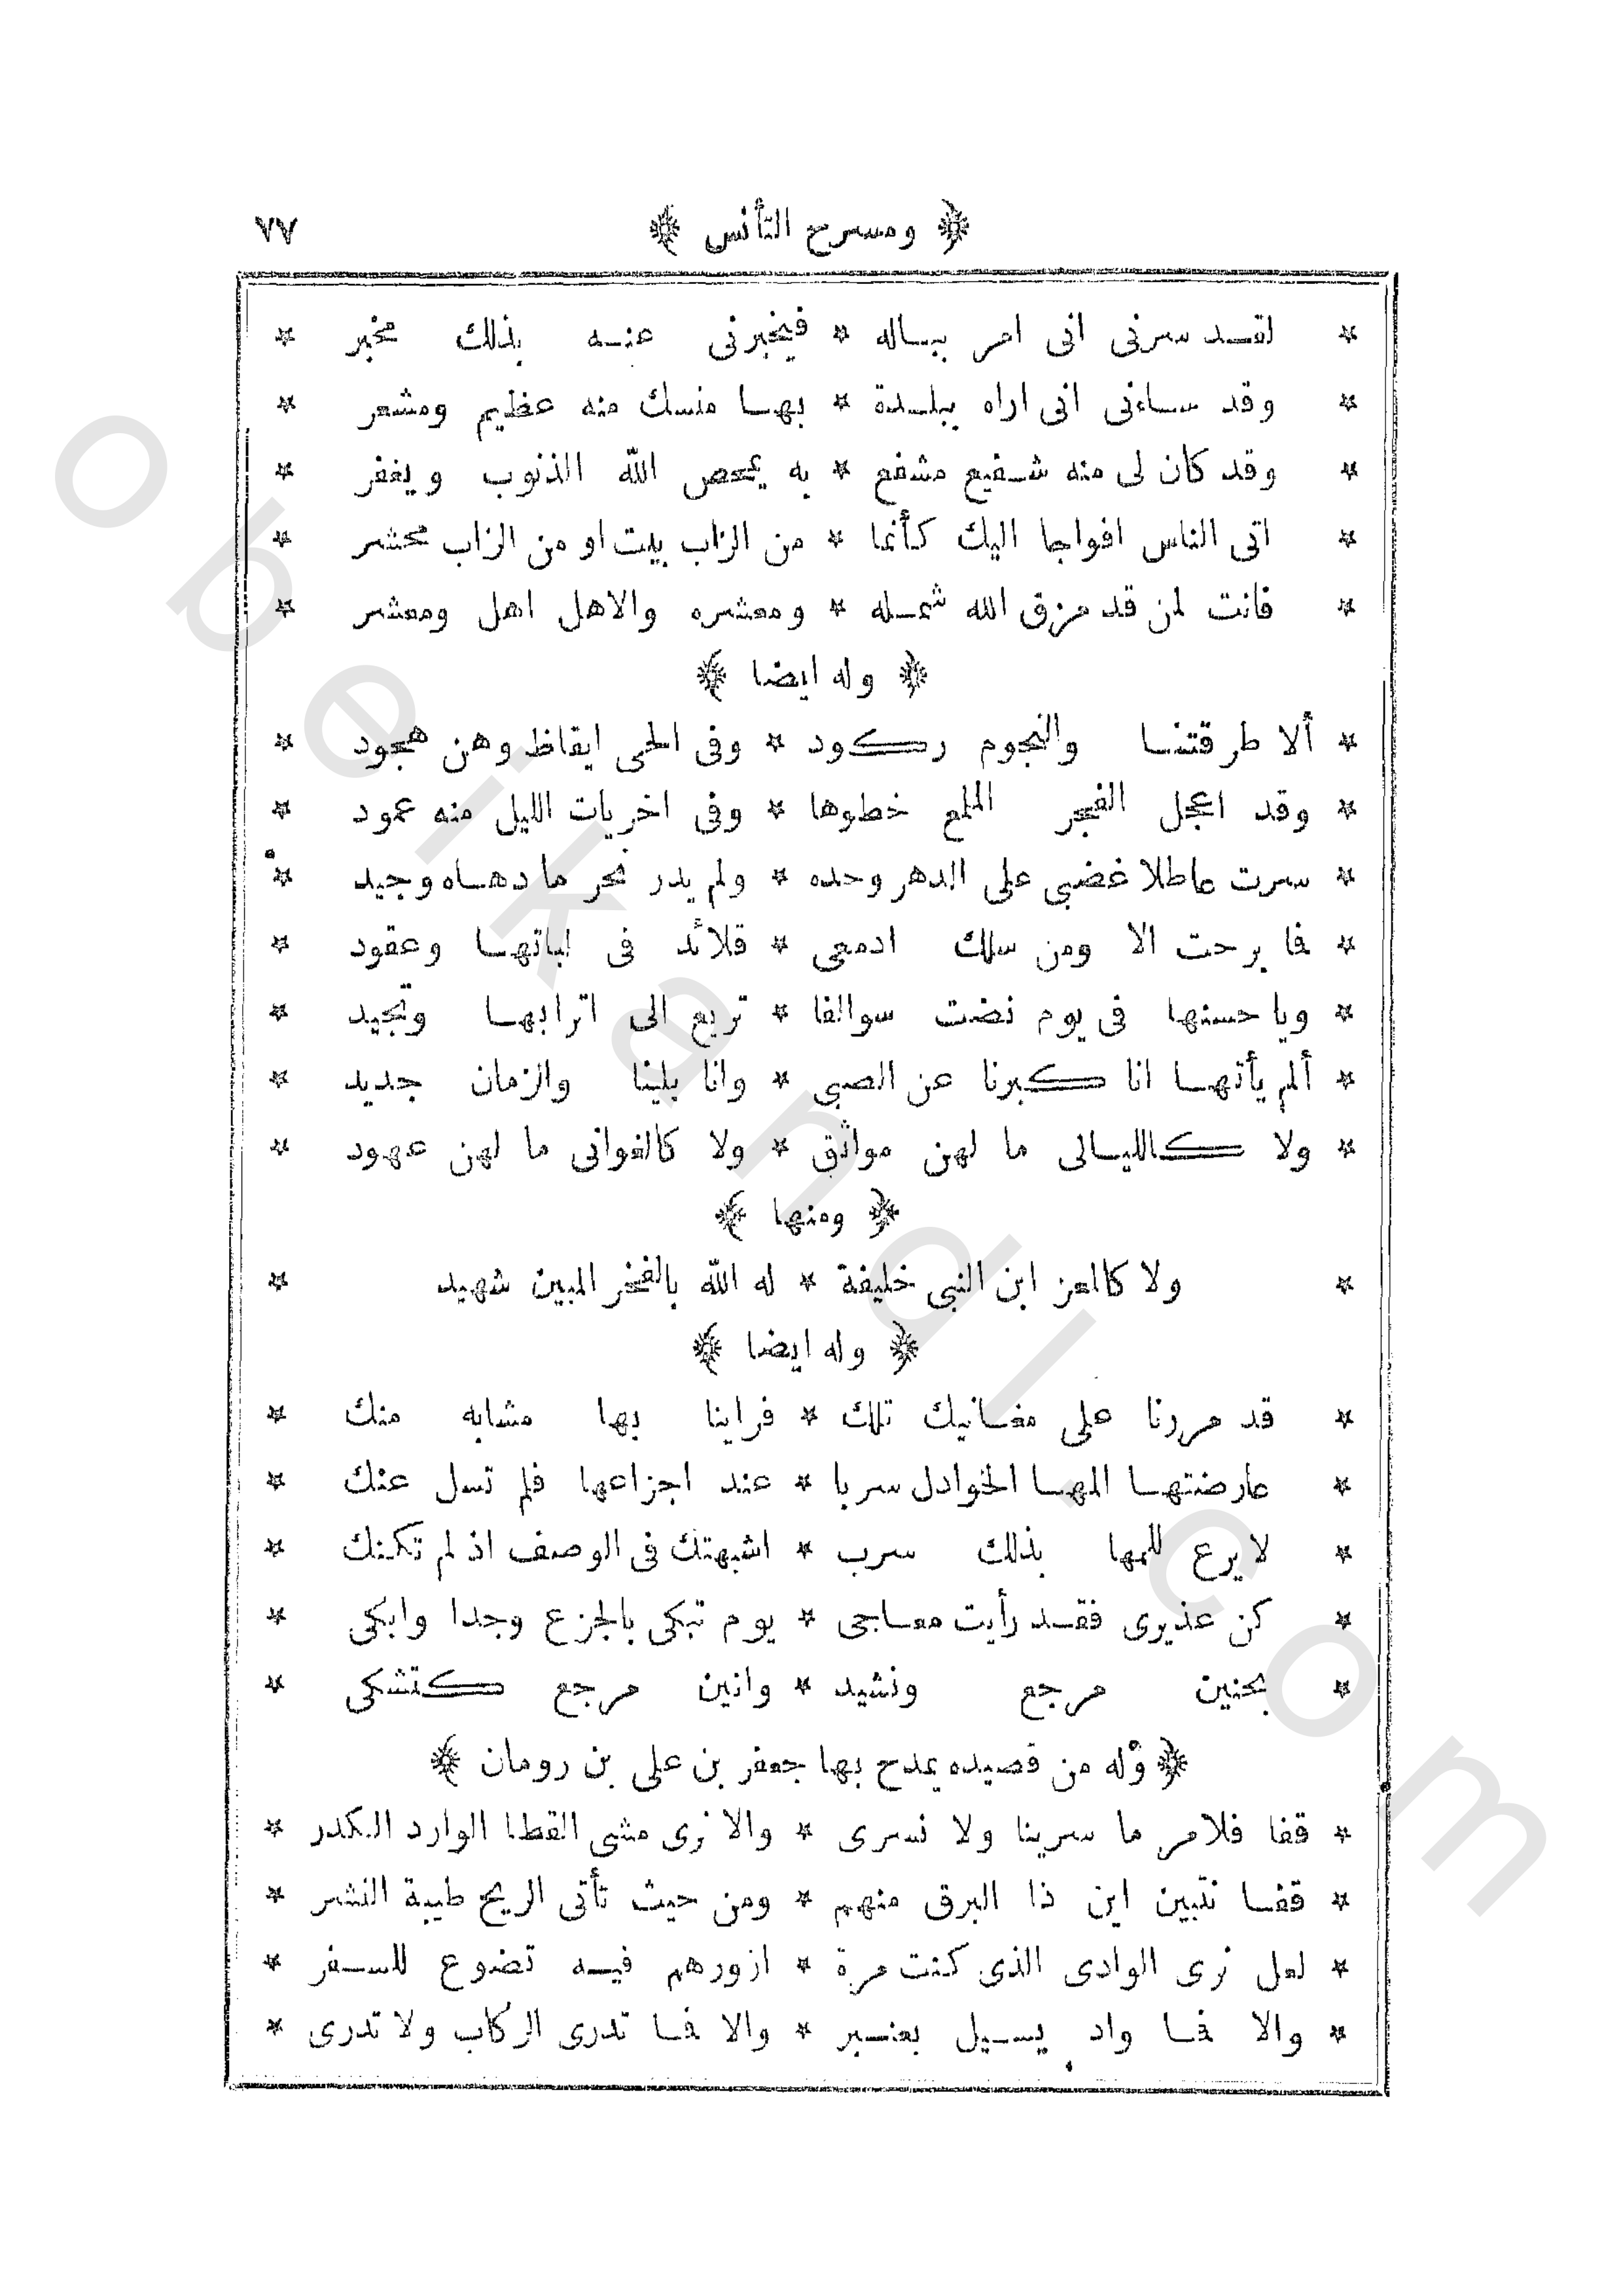 ﴿ ومسرح التأنس ﴾ ٧٧
* لقد سرنى انى امر بباله * فيخبرنى عنه بذلك مخبر *
* وقد ساءنى انى اراه ببلدة * بها منسك منه عظيم ومشعر *
* وقد كان لى منه شفيع مشفع * به يمحص الله الذنوب ويغفر *
* اتى الناس افواجا اليك كأنما * من الزاب بيت او من الزاب محشر *
* فانت لمن قد مزق الله شمله * ومعشره والاهل اهل ومعشر *
﴿ وله ايضا ﴾
* ألا طرقتنا والنجوم ركود * وفى الحى ايقاظ وهن هجود *
* وقد اعجل الفجر الملمع خطوها * وفى اخريات الليل منه عمود *
* سرت عاطلا غضبى على الدهر وحده * ولم يدر نحر ما دهاه وجيد *
* فما برحت الا ومن سلك ادمعى * قلائد فى لباتها وعقود *
* ويا حسنها فى يوم نضت سوالفا * تريع الى اترابها وتجيد *
* ألم يأتها انا كبرنا عن الصبى * وانا بلينا والزمان جديد *
* ولا كالليالى ما لهن مواثق * ولا كالغوانى ما لهن عهود *
﴿ ومنها ﴾
* ولا كالمعز ابن النبى خليفة * له الله بالفخر المبين شهيد *
﴿ وله ايضا ﴾
* قد مررنا على مغانيك تلك * فراينا بها مشابه منك *
* عارضتها المها الخوادل سربا * عند اجزاعها فلم تسل عنك *
* لا يرع للمها بذلك سرب * اشبهتك فى الوصف اذ لم تكنك *
* كن عذيرى فقد رأيت معاجى * يوم تبكى بالجزع وجدا وابكى *
* بحنين مرجع ونشيد * وانين مرجع كتشكى *
﴿ وله من قصيده يمدح بها جعفر بن على بن رومان ﴾
* قفا فلامر ما سرينا ولا نسرى * والا نرى مشى القطا الوارد الكدر *
* قفا نتبين اين ذا البرق منهم * ومن حيث تأتى الريح طيبة النشر *
* لعل نرى الوادى الذى كنت مرة * ازورهم فيه تضوع للسفر *
* والا فما واد يسيل بعنبر * والا فما تدرى الركاب ولا تدرى *
obeikandl.com